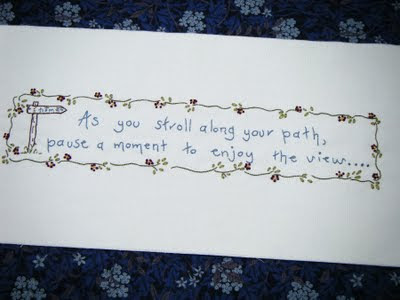 As you stroll along your path,
pause a moment to enjoy the view....